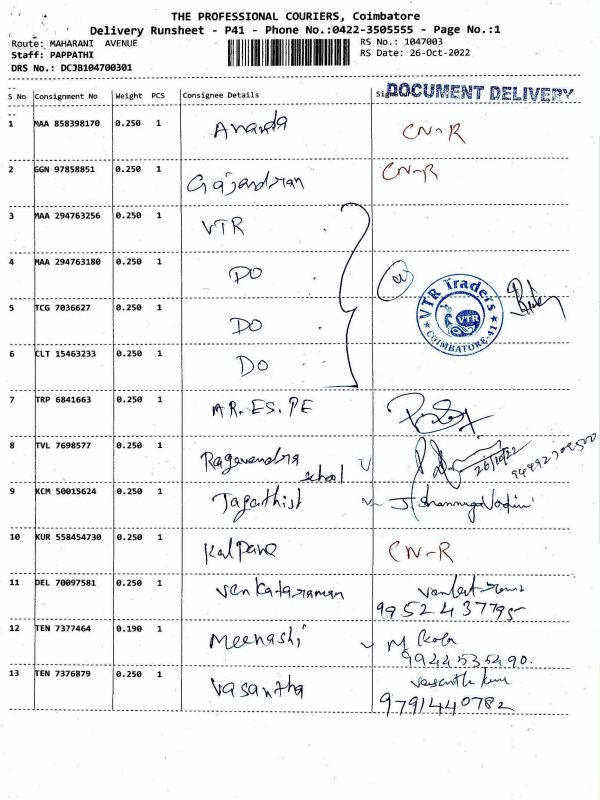 THE PROFESSIONAL COURIERS, Coimbatore
Delivery Runsheet - P41 - Phone No.:0422-3505555 - Page No.:1
Route: MAHARANI AVENUE RS No.: 1047003
Staff: PAPPATHI RS Date: 26-Oct-2022
DRS No.: DCJB104700301
S No Consignment No Weight PCS Consignee Details DOCUMENT DELIVERY
1 MAA 858398170 0.250 1 Ananda CN-R
2 GGN 97858851 0.250 1 Gajandran CN-R
3 MAA 294763256 0.250 1 VTR
4 MAA 294763180 0.250 1 DO
VTR Traders
VTR
COIMBATORE-41
5 TCG 7036627 0.250 1 DO
6 CLT 15463233 0.250 1 DO
7 TRP 6841663 0.250 1 AR.ES.PE
8 TVL 7698577 0.250 1 Ragavendra school 26/10/22
9 KCM 50015624 0.250 1 Jagathist
10 KUR 558454730 0.250 1 Kalpana CN-R
11 DEL 70097581 0.250 1 Venkataraman
9952437795
12 TEN 7377464 0.190 1 Meenashi M Kala
9944535490.
13 TEN 7376879 0.250 1 Vasantha
9791440782